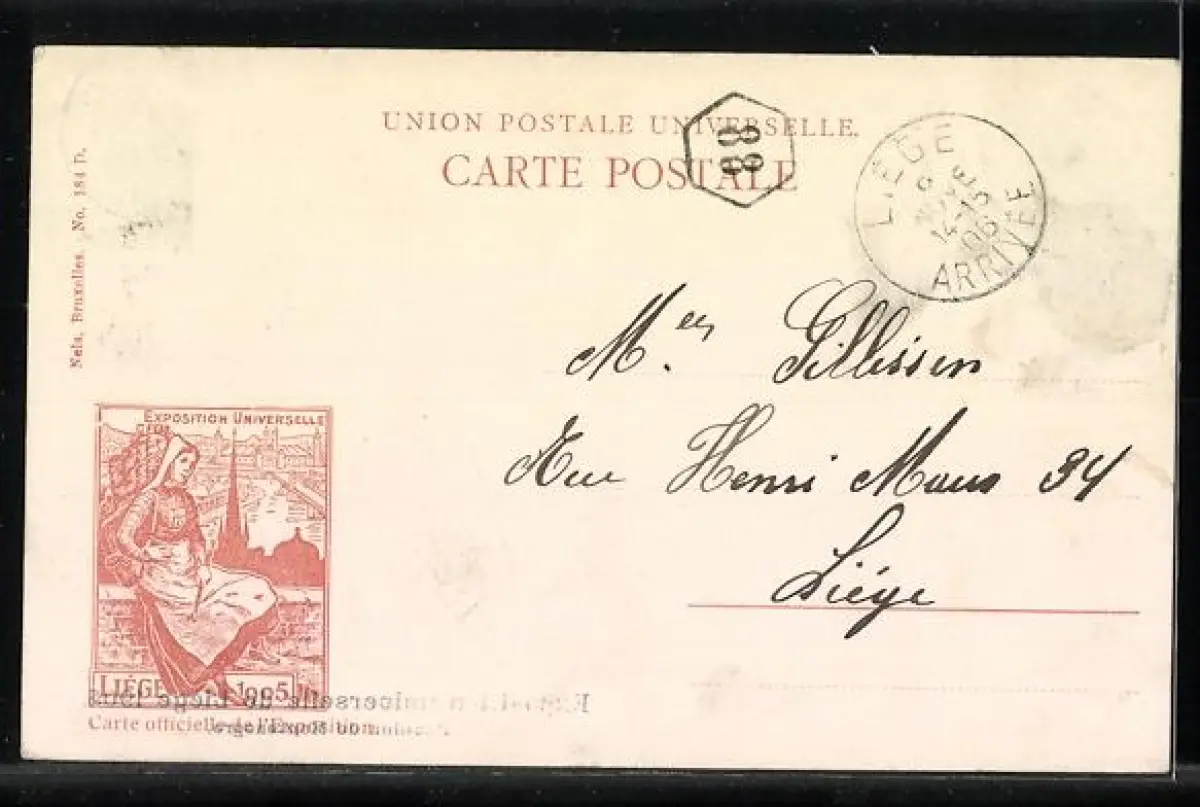 UNION POSTALE UNIVERSELLE.
CARTE POSTALE
88
LIÉGE
14-15
06
ARRIVÉE
Nels, Bruxelles. No. 184 D.
Gillissen
Rue Henri Maus 34
Liége
EXPOSITION UNIVERSELLE
LIÉGE 1905
Carte officielle de l'Exposition